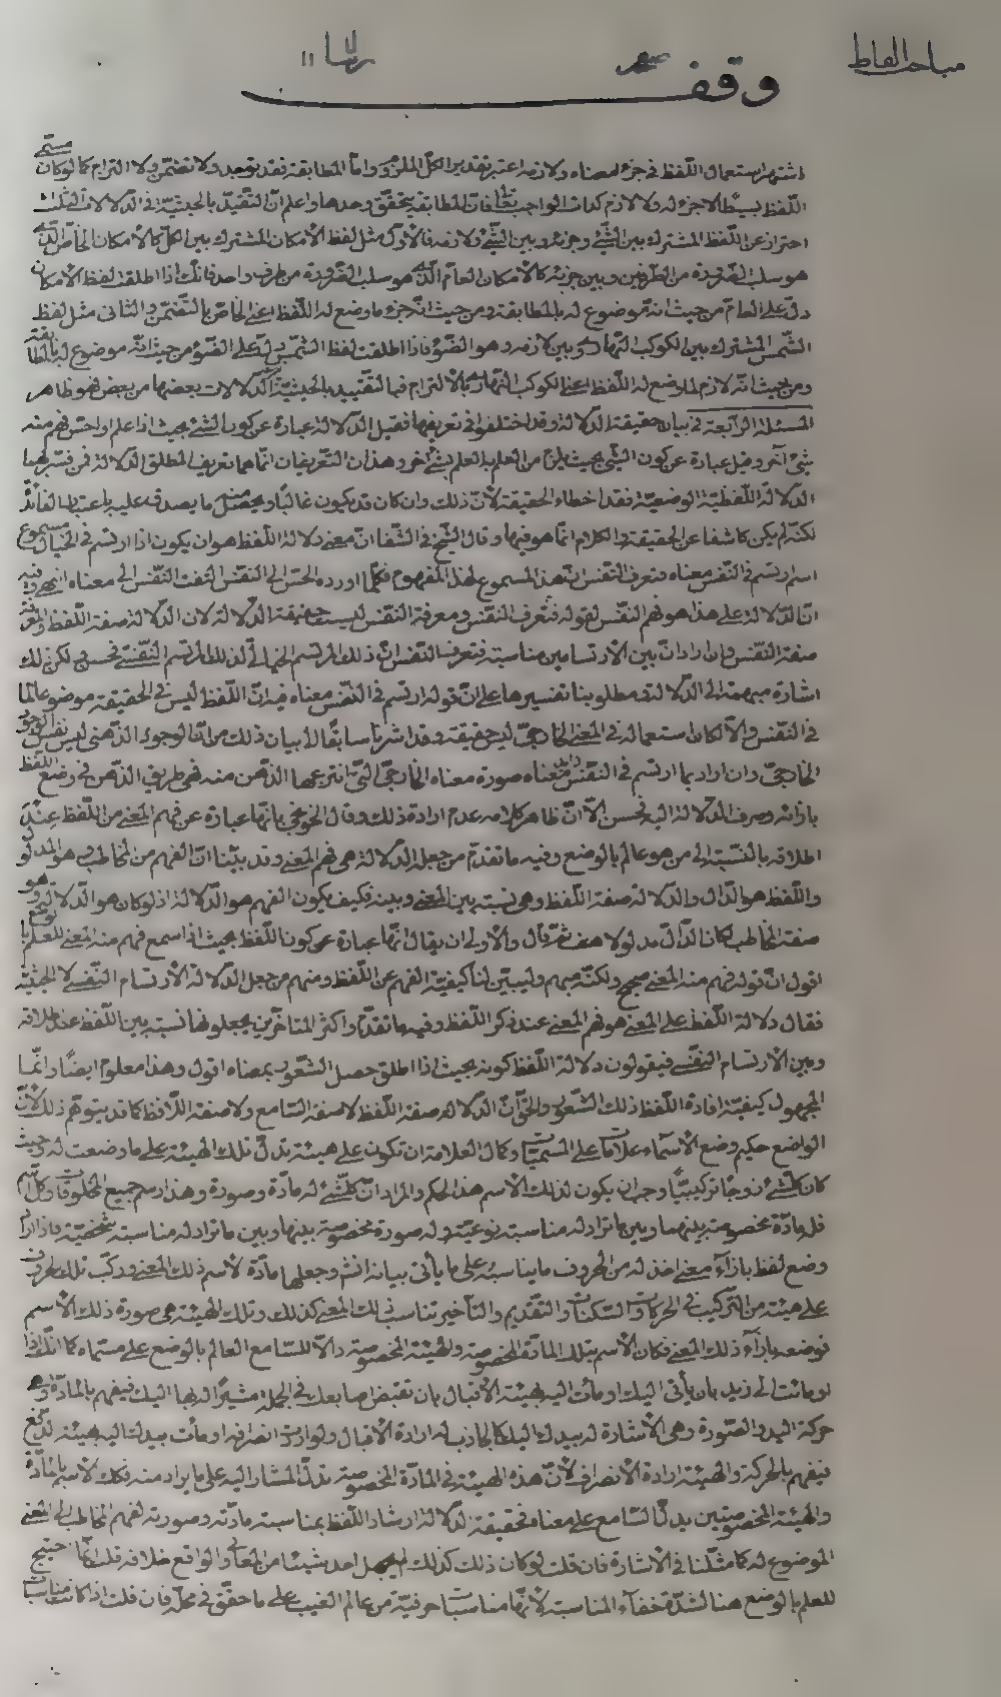 مباحث الفاظ
وقف
اشتهر استعمال اللفظ في جزء معناه ولازمه اعتبر تقدير الكل الملزوم واما المطابقة فقد توجد ولا تضمن ولا التزام كما لو كان مسمى
اللفظ بسيطا لا جزء له ولا لازم كذات الواجب تعالى فان المطابقة يتحقق وحدها واعلم ان التقييد بالحيثية في الدلالات الثلث
احتراز عن اللفظ المشترك بين الشيء وجزئه وبين الشيء ولازمه فالاول مثل لفظ الامكان المشترك بين الكل كالامكان الخاص الذي
هو سلب الضرورة من الطرفين وبين جزئه كالامكان العام الذي هو سلب الضرورة من طرف واحد فانك اذا اطلقت لفظ الامكان
دل على العام من حيث انه موضوع له بالمطابقة ومن حيث انه جزء ما وضع له اللفظ اعني الخاص بالتضمن والثاني مثل لفظ
الشمس المشترك بين الكوكب النهاري وبين لازمه وهو الضوء فاذا اطلقت لفظ الشمس دل على الضوء من حيث انه موضوع له بالمطابقة
ومن حيث انه لازم لما وضع له اللفظ اعني الكوكب النهاري بالالتزام فما لتقييد بالحيثية الدلالات بعضها من بعض فهو ظاهر
المسئلة الرابعة في بيان حقيقة الدلالة وقد اختلفوا في تعريفها فقيل الدلالة عبارة عن كون الشيء بحيث اذا علم او احس فهم منه
شيء آخر وقيل عبارة عن كون الشيء بحيث يلزم من العلم به العلم بشيء آخر وهذان التعريفان انما هما تعريف المطلق الدلالة فمن فسر بهما
الدلالة اللفظية الوضعية فقد اخطاء الحقيقة لان ذلك وان كان قد يكون غالبا ويحصل منه ما يصدق عليه باعتبار الفائدة
لكنه لم يكن كاشفا عن الحقيقة والكلام انما هو فيها وقال الشيخ في الشفا ان معنى دلالة اللفظ هو ان يكون اذا ارتسم في الخيال مسموع
اسم ارتسم في النفس معناه فتعرف النفس ان هذا المسموع لهذا المفهوم فكلما اورده الحس الى النفس التفت النفس الى معناه انتهى وفيه
ان الدلالة على هذا هو فهم النفس لقوله فتعرف النفس ومعرفة النفس ليست حقيقة الدلالة لان الدلالة صفة اللفظ والمعرفة
صفة النفس وان اراد ان بين الارتسامين مناسبة فتعرف النفس ان ذلك المرتسم الخيالي لذلك المرتسم النفسي فحسن ولكن ذلك
اشارة مبهمة الى الدلالة ومطلوبنا تفسيرها على ان قوله ارتسم في النفس معناه فيه ان اللفظ ليس في الحقيقة موضوعا لما
في النفس والا لكان استعماله في المعنى الخارجي ليس حقيقة وقد اشرنا سابقا الى بيان ذلك من ان الوجود الذهني ليس نفس الوجود
الخارجي وان اراد بما ارتسم في النفس معناه صورة معناه الخارجي التي انتزعها الذهن منه فهي طريق الذهن في وضع اللفظ
بازائه وصرف الدلالة اليه فحسن الا ان ظاهر كلامه عدم ارادة ذلك وقال الخونجي بانها عبارة عن فهم المعنى من اللفظ عند
اطلاقه بالنسبة الى من هو عالم بالوضع وفيه ما تقدم من جعل الدلالة هي فهم المعنى وقد بينا ان الفهم من المخاطب وهو المدلول
واللفظ هو الدال والدلالة صفة اللفظ وهي نسبة بين المعنى وبينه فكيف يكون الفهم هو الدلالة اذ لو كان هو الدلالة وهو
صفة المخاطب لكان الدال مدلولا هف ثم قال والاولى ان يقال انها عبارة عن كون اللفظ بحيث اذا سمع فهم منه المعنى للعلم بالوضع
اقول ان قوله فهم منه المعنى صحيح ولكنه مبهم وليبين لنا كيفية الفهم عن اللفظ ومنهم من جعل الدلالة الارتسام النفسي لا الحيثية
فقال دلالة اللفظ على المعنى هو فهم المعنى عند ذكر اللفظ وفيه ما تقدم واكثر المتاخرين يجعلونها نسبة بين اللفظ عند اطلاقه
وبين الارتسام النفسي فيقولون دلالة اللفظ كونه بحيث اذا اطلق حصل الشعور بمعناه اقول وهذا معلوم ايضا وانما
المجهول كيفية افادة اللفظ ذلك الشعور والحق ان الدلالة صفة اللفظ لا صفة السامع ولا صفة اللافظ كما قد يتوهم ذلك لان
الواضع حكيم وضع الاسماء علامات على المسميات وكمال العلامة ان تكون على هيئة تدل تلك الهيئة على ما وضعت له وحيث
كان كل شيء زوجا تركيبيا وجب ان يكون لذلك الاسم هذا الحكم والمراد ان كل شيء له مادة وصورة وهذا رسم جميع المخلوقات وكل اسم
فله مادة مخصوصة بينها وبين ما تراد له مناسبة نوعية وله صورة مخصوصة بينها وبين ما تراد له مناسبة شخصية واذا اراد
وضع لفظ بازاء معنى اخذ له من الحروف ما يناسبه على ما يأتي بيانه انشم وجعلها مادة لاسم ذلك المعنى وركب تلك الحروف
على هيئة من التركيب في الحركات والسكنات والتقديم والتأخير تناسب ذلك المعنى كذلك وتلك الهيئة هي صورة ذلك الاسم
فوضعه بازاء ذلك المعنى فكان الاسم بتلك المادة المخصوصة والهيئة المخصوصة دالا للسامع العالم بالوضع على مسماه كما انك اذا
اومأت الى زيد بان يأتي اليك اومأت اليه بهيئة الاقبال بان تقبض اصابعك في الجملة مشيرا له بها اليك فيفهم بالمادة وهي
حركة اليد والصورة وهي الاشارة له بيدك اليك كالجاذب له ارادة الاقبال ولو اردت انصرافه اومأت بيدك اليه بهيئة الدفع
فيفهم بالحركة والهيئة ارادة الانصراف لان هذه الهيئة في المادة المخصوصة تدل المشار اليه على ما يراد منه فكك الاسم بالمادة
والهيئة المخصوصتين يدل السامع على معناه فحقيقة الدلالة ارشاد اللفظ بمناسبة مادته وصورته لفهم المخاطب الى المعنى
الموضوع له كما مثلنا في الاشارة فان قلت لو كان ذلك كذلك لم يجهل احد شيئا من المعاني والواقع خلافه قلت انما احتيج
للعلم بالوضع هنا لشدة خفاء المناسبة لانها مناسبات حرفية من عالم الغيب على ما حقق في محله فان قلت اذا كانت مناسبات